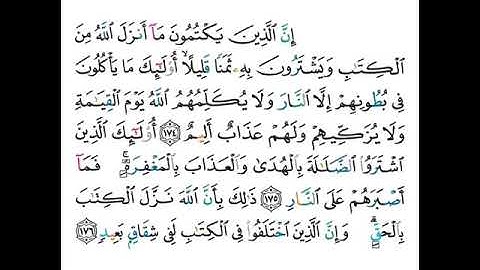 إِنَّ ٱلَّذِينَ يَكْتُمُونَ مَآ أَنزَلَ ٱللَّهُ مِنَ
ٱلْكِتَٰبِ وَيَشْتَرُونَ بِهِۦ ثَمَنًا قَلِيلًا ۙ أُو۟لَٰٓئِكَ مَا يَأْكُلُونَ
فِى بُطُونِهِمْ إِلَّا ٱلنَّارَ وَلَا يُكَلِّمُهُمُ ٱللَّهُ يَوْمَ ٱلْقِيَٰمَةِ
وَلَا يُزَكِّيهِمْ وَلَهُمْ عَذَابٌ أَلِيمٌ ١٧٤ أُو۟لَٰٓئِكَ ٱلَّذِينَ
ٱشْتَرَوُا۟ ٱلضَّلَٰلَةَ بِٱلْهُدَىٰ وَٱلْعَذَابَ بِٱلْمَغْفِرَةِ ۚ فَمَآ
أَصْبَرَهُمْ عَلَى ٱلنَّارِ ١٧٥ ذَٰلِكَ بِأَنَّ ٱللَّهَ نَزَّلَ ٱلْكِتَٰبَ
بِٱلْحَقِّ ۗ وَإِنَّ ٱلَّذِينَ ٱخْتَلَفُوا۟ فِى ٱلْكِتَٰبِ لَفِى شِقَاقٍۭ بَعِيدٍ ١٧٦